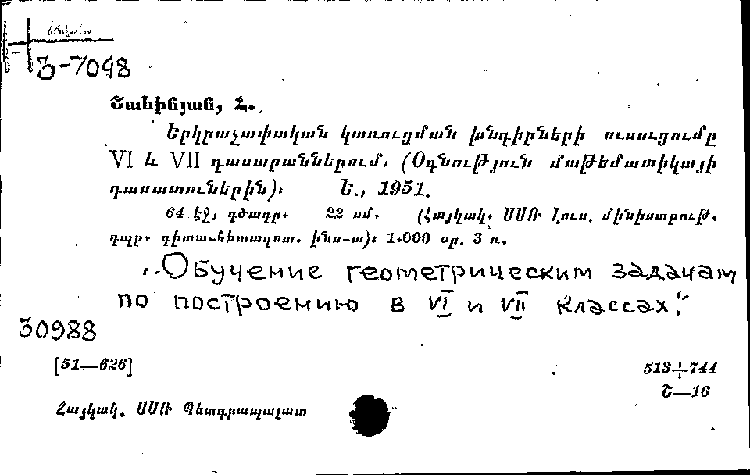 Յ-7048
Շահինյան, Հ.
Երկրաչափական կառուցման խնդիրների ուսուցումը
VI և VII դասարաններում. (Օգնություն մաթեմատիկայի
դասատուներին)։ Ե., 1951.
64 էջ, գծագր. 22 սմ. (Հայկակ. ՍՍՌ Լուս. մինիստրութ.
դպր. գիտա-հետազոտ. ինս-տ)։ 1.000 օր. 3 ռ.
„Обучение геометрическим задачам
по построению в VI и VII классах."
30988
[51—626]
513+744
Շ—16
Հայկակ. ՍՍՌ Պետգրապալատ